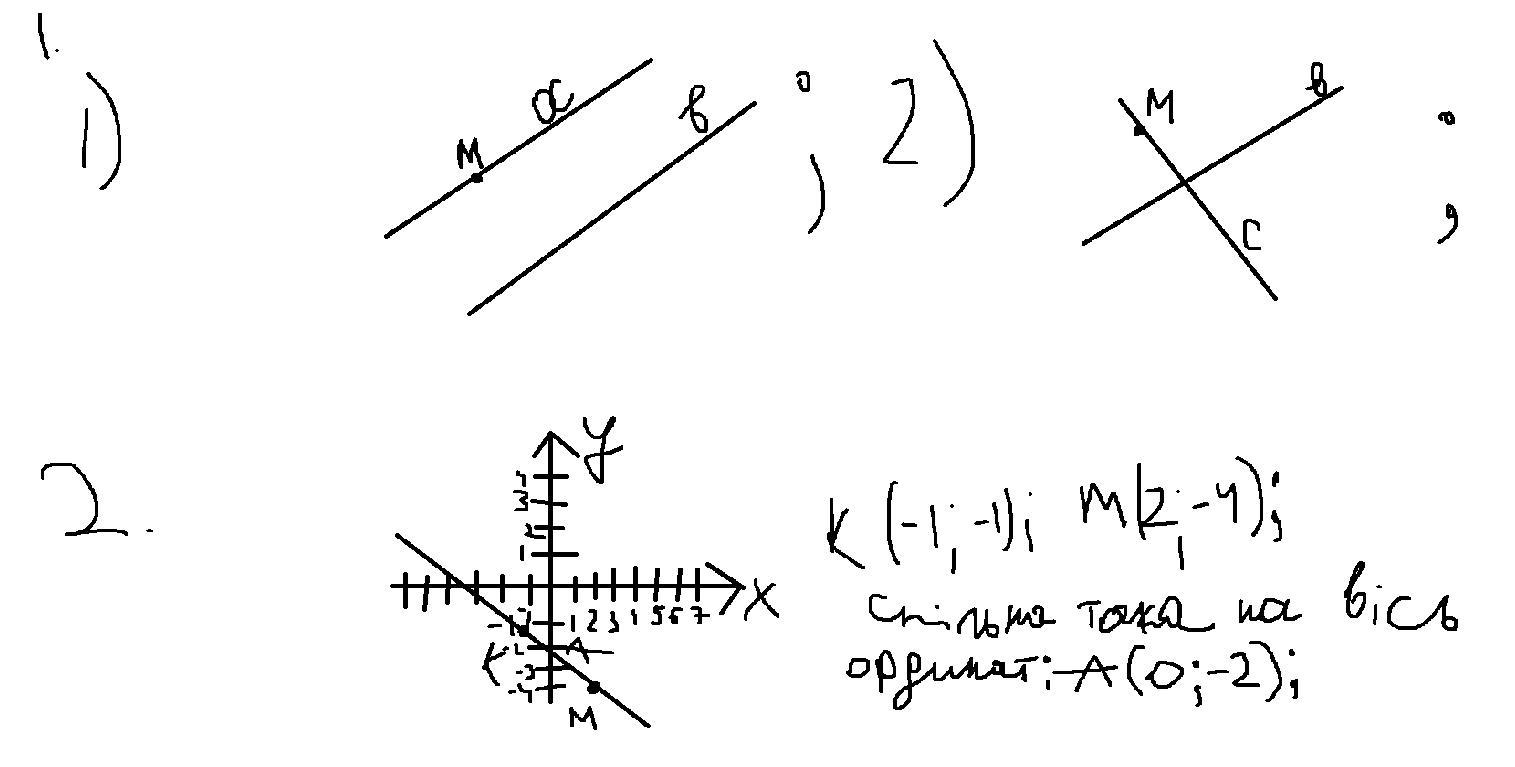 1.
1) M a в ; 2) M в c ;
2.
y
4
3
2
1
x
-1 1 2 3 4 5 6 7
K -2 A
-3
-4
M
K (-1; -1); M(2; -4);
спільна точка на вісь
ординат: A(0; -2);